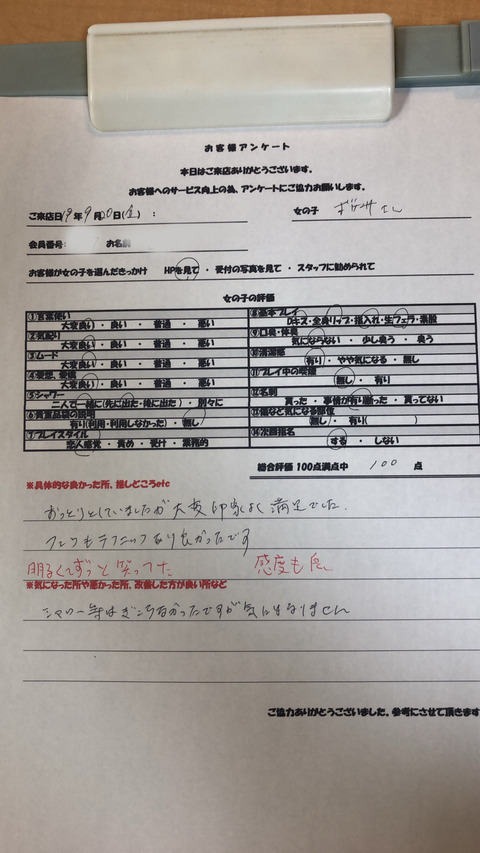 お客様アンケート
本日はご来店ありがとうございます。
お客様へのサービス向上の為、アンケートにご協力お願いします。
ご来店日 19年 9月 20日(金) : 女の子
会員番号: お名前
お客様が女の子を選んだきっかけ HPを見て ・ 受付の写真を見て ・ スタッフに勧められて
女の子の評価
①言葉使い
大変良い ・ 良い ・ 普通 ・ 悪い
②気配り
大変良い ・ 良い ・ 普通 ・ 悪い
③ムード
大変良い ・ 良い ・ 普通 ・ 悪い
④愛想、愛嬌
大変良い ・ 良い ・ 普通 ・ 悪い
⑤シャワー
二人で一緒に(先に出た・後に出た) ・ 別々に
⑥貴重品袋の説明
有り(利用・利用しなかった) ・ 無し
⑦プレイスタイル
恋人感覚 ・ 責め ・ 受け ・ 業務的
⑧基本プレイ
Dキス・全身リップ・指入れ・生フェラ・素股
⑨口臭・体臭
気にならない ・ 少し臭う ・ 臭う
⑩清潔感
有り ・ やや気になる ・ 無し
⑪プレイ中の喫煙
無し ・ 有り
⑫名刺
貰った ・ 事情が有り断った ・ 貰ってない
⑬傷など気になる部位
無し ・ 有り( )
⑭次回指名
する ・ しない
総合評価 100点満点中 100 点
※具体的な良かった所、推しどころetc
おっとりとしていましたが大変印象よく満足でした.
フェラもテクニックあり良かったです
明るくてずっと笑ってた 感度も良
※気になった所や悪かった所、改善した方が良い所など
シャワー等はぎこちなかったですが気になりません
ご協力ありがとうございました。参考にさせて頂きます